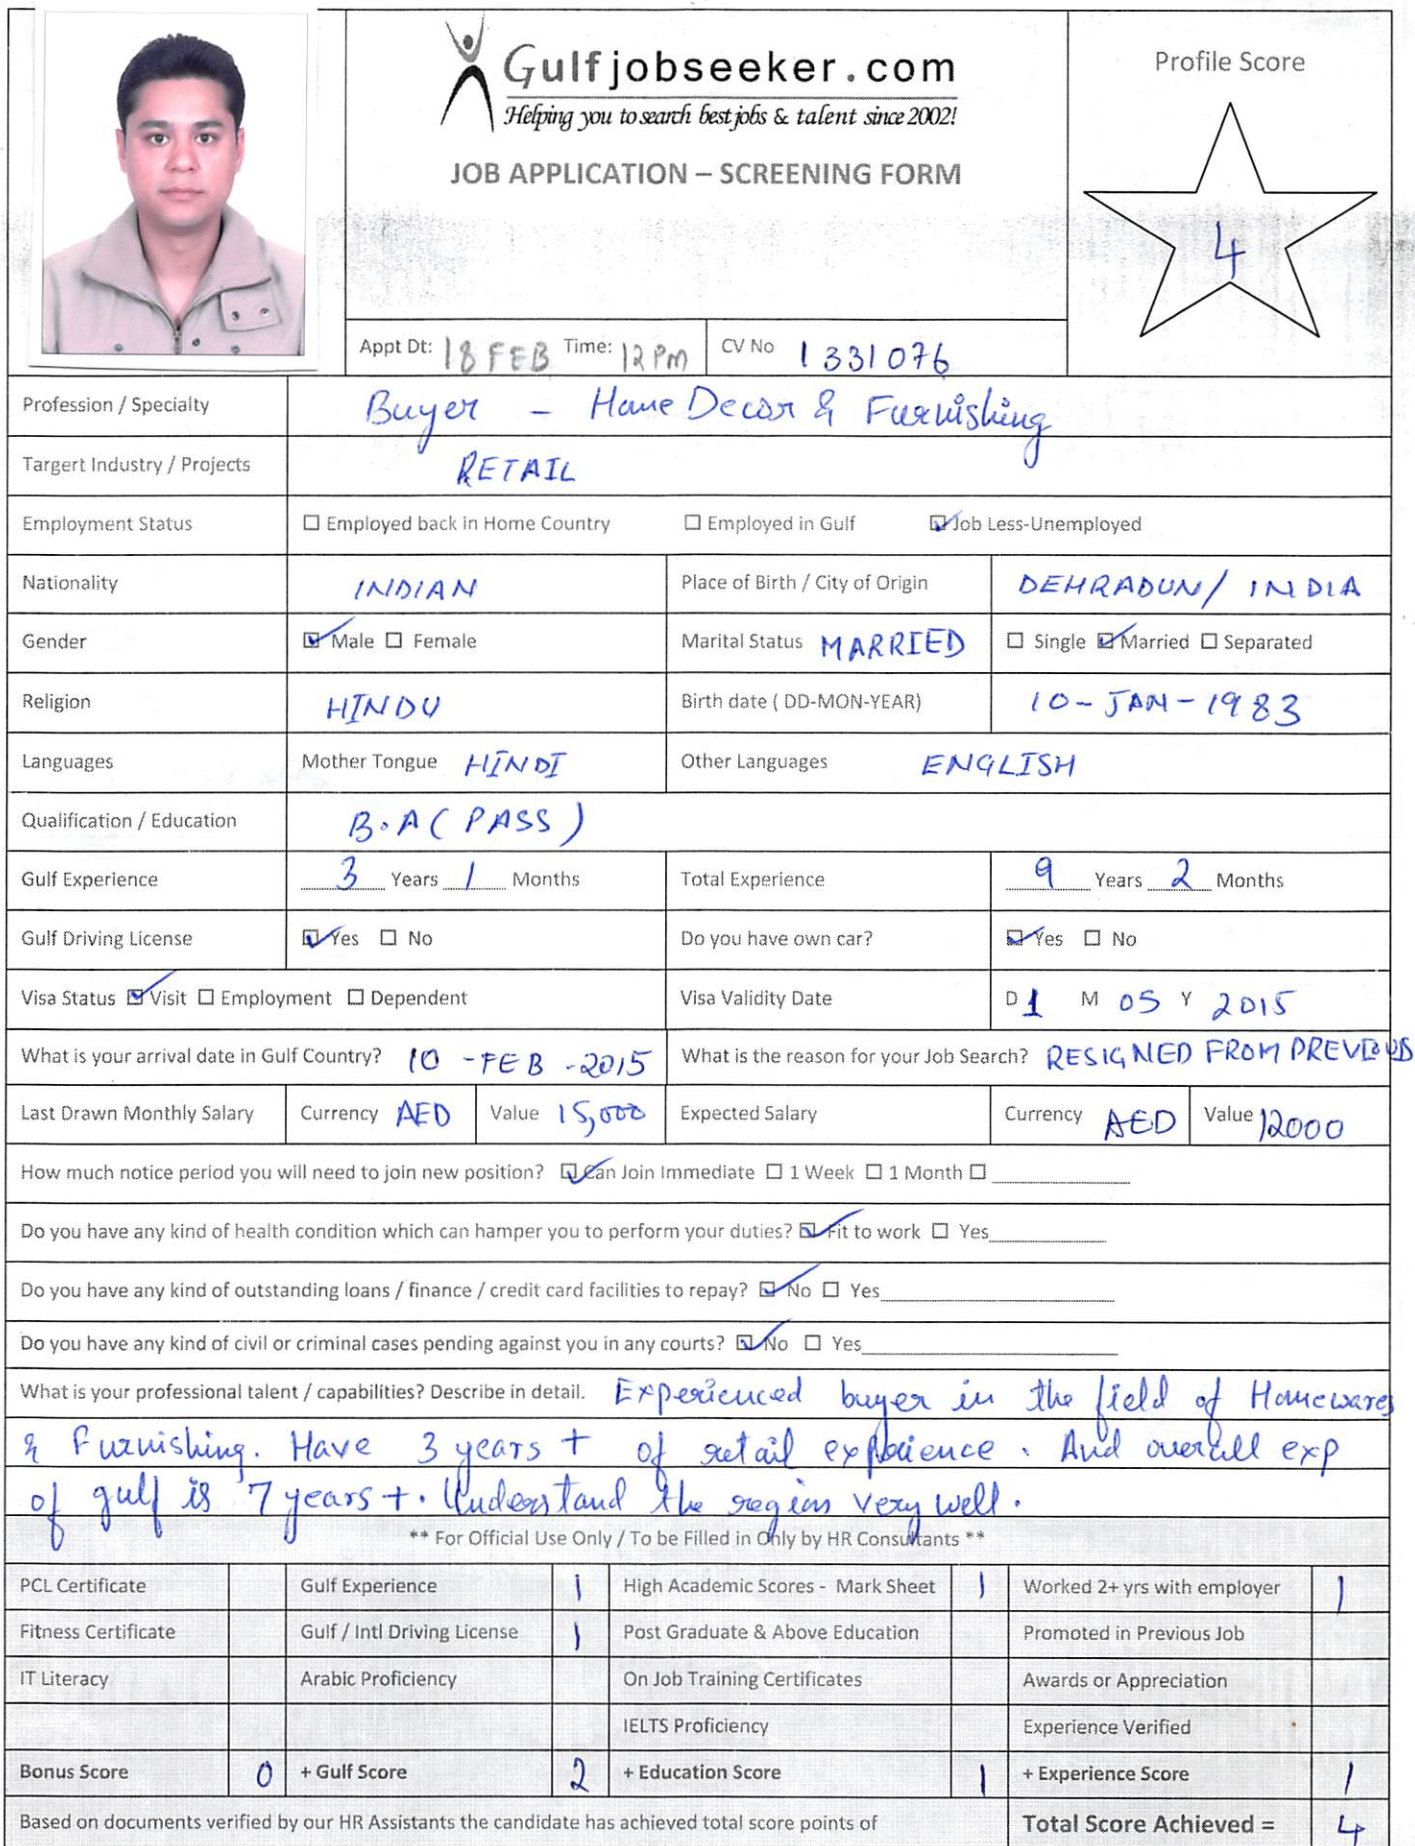 Gulfjobseeker.com
Helping you to search best jobs & talent since 2002!
JOB APPLICATION – SCREENING FORM
Profile Score
4
Appt Dt: 18 FEB Time: 12 PM CV No 1331076
Profession / Specialty Buyer - Home Decor & Furnishing
Targert Industry / Projects RETAIL
Employment Status ☐ Employed back in Home Country ☐ Employed in Gulf ☑ Job Less-Unemployed
Nationality INDIAN Place of Birth / City of Origin DEHRADUN/ INDIA
Gender ☑ Male ☐ Female Marital Status MARRIED ☐ Single ☑ Married ☐ Separated
Religion HINDU Birth date ( DD-MON-YEAR) 10-JAN-1983
Languages Mother Tongue HINDI Other Languages ENGLISH
Qualification / Education B.A ( PASS )
Gulf Experience 3 Years 1 Months Total Experience 9 Years 2 Months
Gulf Driving License ☑ Yes ☐ No Do you have own car? ☑ Yes ☐ No
Visa Status ☑ Visit ☐ Employment ☐ Dependent Visa Validity Date D 1 M 05 Y 2015
What is your arrival date in Gulf Country? 10 -FEB -2015 What is the reason for your Job Search? RESIGNED FROM PREVIOUS
Last Drawn Monthly Salary Currency AED Value 15,000 Expected Salary Currency AED Value 12000
How much notice period you will need to join new position? ☑ Can Join Immediate ☐ 1 Week ☐ 1 Month ☐
Do you have any kind of health condition which can hamper you to perform your duties? ☑ Fit to work ☐ Yes
Do you have any kind of outstanding loans / finance / credit card facilities to repay? ☑ No ☐ Yes
Do you have any kind of civil or criminal cases pending against you in any courts? ☑ No ☐ Yes
What is your professional talent / capabilities? Describe in detail. Experienced buyer in the field of Homewares
& Furnishing. Have 3 years + of retail experience. And overall exp
of gulf is 7 years +. Understand the region very well.
** For Official Use Only / To be Filled in Only by HR Consultants **
PCL Certificate Gulf Experience 1 High Academic Scores - Mark Sheet 1 Worked 2+ yrs with employer 1
Fitness Certificate Gulf / Intl Driving License 1 Post Graduate & Above Education Promoted in Previous Job
IT Literacy Arabic Proficiency On Job Training Certificates Awards or Appreciation
IELTS Proficiency Experience Verified
Bonus Score 0 + Gulf Score 2 + Education Score 1 + Experience Score 1
Based on documents verified by our HR Assistants the candidate has achieved total score points of Total Score Achieved = 4